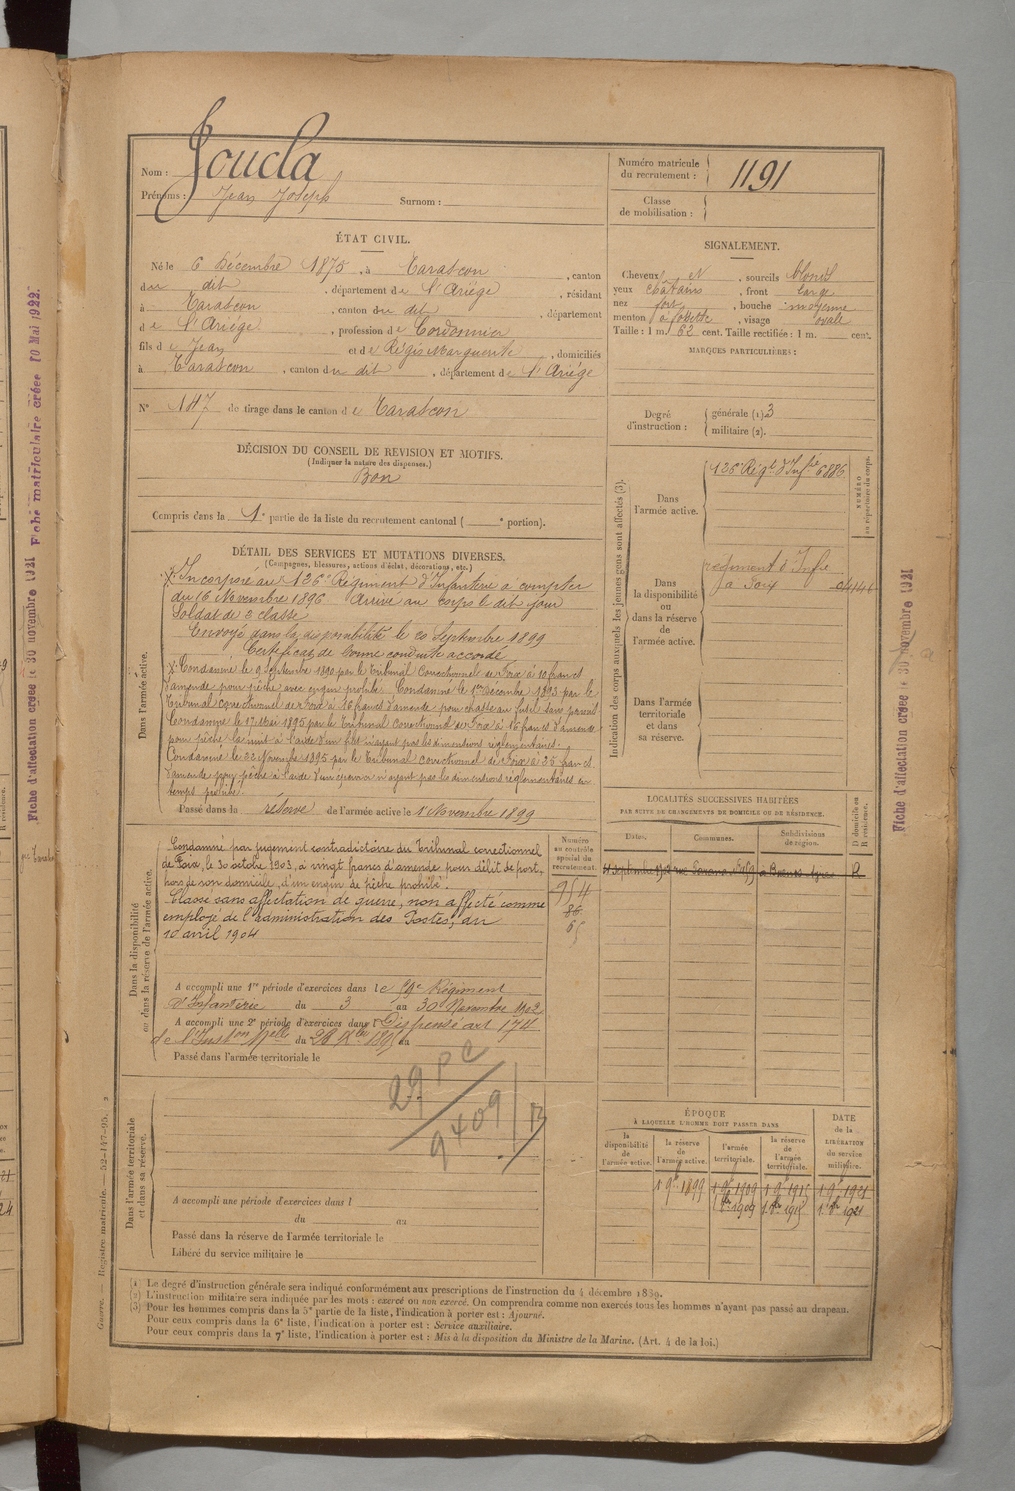 Nom : Joucla
Prénoms : Jean Joseph Surnom :
Numéro matricule du recrutement : 1191
Classe de mobilisation :
ÉTAT CIVIL.
Né le 6 Décembre 1875, à Tarascon, canton
du dit, département de l'Ariège, résidant
à Tarascon, canton du dit, département
de l'Ariège, profession de Cordonnier
fils de Jean et de Régis Marguerite, domiciliés
à Tarascon, canton du dit, département de l'Ariége
N° 147 de tirage dans le canton de Tarascon
DÉCISION DU CONSEIL DE REVISION ET MOTIFS.
(Indiquer la nature des dispenses.)
Bon
Compris dans la 1e partie de la liste du recrutement cantonal ( e portion).
SIGNALEMENT.
Cheveux N, sourcils blonds
yeux châtains, front large
nez fort, bouche moyenne
menton à fossette, visage ovale
Taille : 1 m. 62 cent. Taille rectifiée : 1 m. cent.
MARQUES PARTICULIÈRES :
Degré d'instruction : générale (1). 3
militaire (2).
Indication des corps auxquels les jeunes gens sont affectés (3).
NUMÉRO au répertoire du corps.
Dans l'armée active. 126e Régt d'Infie 6886
Dans la disponibilité ou dans la réserve de l'armée active. régiment d'Infie
à Foix
Dans l'armée territoriale et dans sa réserve.
DÉTAIL DES SERVICES ET MUTATIONS DIVERSES.
(Campagnes, blessures, actions d'éclat, décorations, etc.)
Dans l'armée active.
Incorporé au 126e Régiment d'Infanterie à compter
du 16 Novembre 1896 Arrivé au corps le dit jour
Soldat de 2 classe
Envoyé dans la disponibilité le 20 Septembre 1899
Certificat de bonne conduite accordé
Condamné le 9 Septembre 1890 par le Tribunal Correctionnel de Foix à 10 francs
d'amende pour pêche avec engin prohibé. Condamné le 1er Décembre 1893 par le
Tribunal correctionnel de Foix à 16 francs d'amende pour chasse au fusil sans permis
Condamné le 17 Mai 1895 par le Tribunal correctionnel de Foix à 16 francs d'amende
pour pêche la nuit à l'aide d'un filet n'ayant pas les dimensions réglementaires.
Condamné le 22 Novembre 1895 par le Tribunal correctionnel de Foix à 25 francs
d'amende pour pêche à l'aide d'un n'ayant pas les dimensions réglementaires en
temps prohibé.
Passé dans la réserve de l'armée active le 1 Novembre 1899
Dans la disponibilité ou dans la réserve de l'armée active.
Condamné par jugement contradictoire du Tribunal correctionnel
de Foix, le 30 octobre 1903, à vingt francs d'amende pour délit de port,
hors de son domicile, d'un engin de pêche prohibé.
Classé sans affectation de guerre, non affecté comme
employé de l'administration des Postes, du
10 avril 1904
Numéro au contrôle spécial du recrutement.
954
A accompli une 1re période d'exercices dans le Régiment
d'Infanterie du 3 au 30 Novembre 1902
A accompli une 2e période d'exercices dans l Dispensé art 174
de l'Inston Melle du 28 Xbre 1895 au
Passé dans l'armée territoriale le
LOCALITÉS SUCCESSIVES HABITÉES
PAR SUITE DE CHANGEMENTS DE DOMICILE OU DE RÉSIDENCE.
Dates. Communes. Subdivisions de région. D domicile ou R résidence.
à Buenos Ayres R
29 PC
9409
Dans l'armée territoriale et dans sa réserve.
A accompli une période d'exercices dans l
du au
Passé dans la réserve de l'armée territoriale le
Libéré du service militaire le
ÉPOQUE
À LAQUELLE L'HOMME DOIT PASSER DANS
la disponibilité de l'armée active. la réserve de l'armée active. l'armée territoriale. la réserve de l'armée territoriale. DATE de la LIBÉRATION du service militaire.
1 9e 1899 1 9e 1909 1 9e 1915 1 9e 1921
(1) Le degré d'instruction générale sera indiqué conformément aux prescriptions de l'instruction du 4 décembre 1889.
(2) L'instruction militaire sera indiquée par les mots : exercé ou non exercé. On comprendra comme non exercés tous les hommes n'ayant pas passé au drapeau.
(3) Pour les hommes compris dans la 5e partie de la liste, l'indication à porter est : Ajourné.
Pour ceux compris dans la 6e liste, l'indication à porter est : Service auxiliaire.
Pour ceux compris dans la 7e liste, l'indication à porter est : Mis à la disposition du Ministre de la Marine. (Art. 4 de la loi.)
Guerre. — Registre matricule. — 52-147-95.
Fiche d'affectation créée le 30 novembre 1921 Fiche matriculaire créée 10 Mai 1922.
Fiche d'affectation créée le 30 novembre 1921